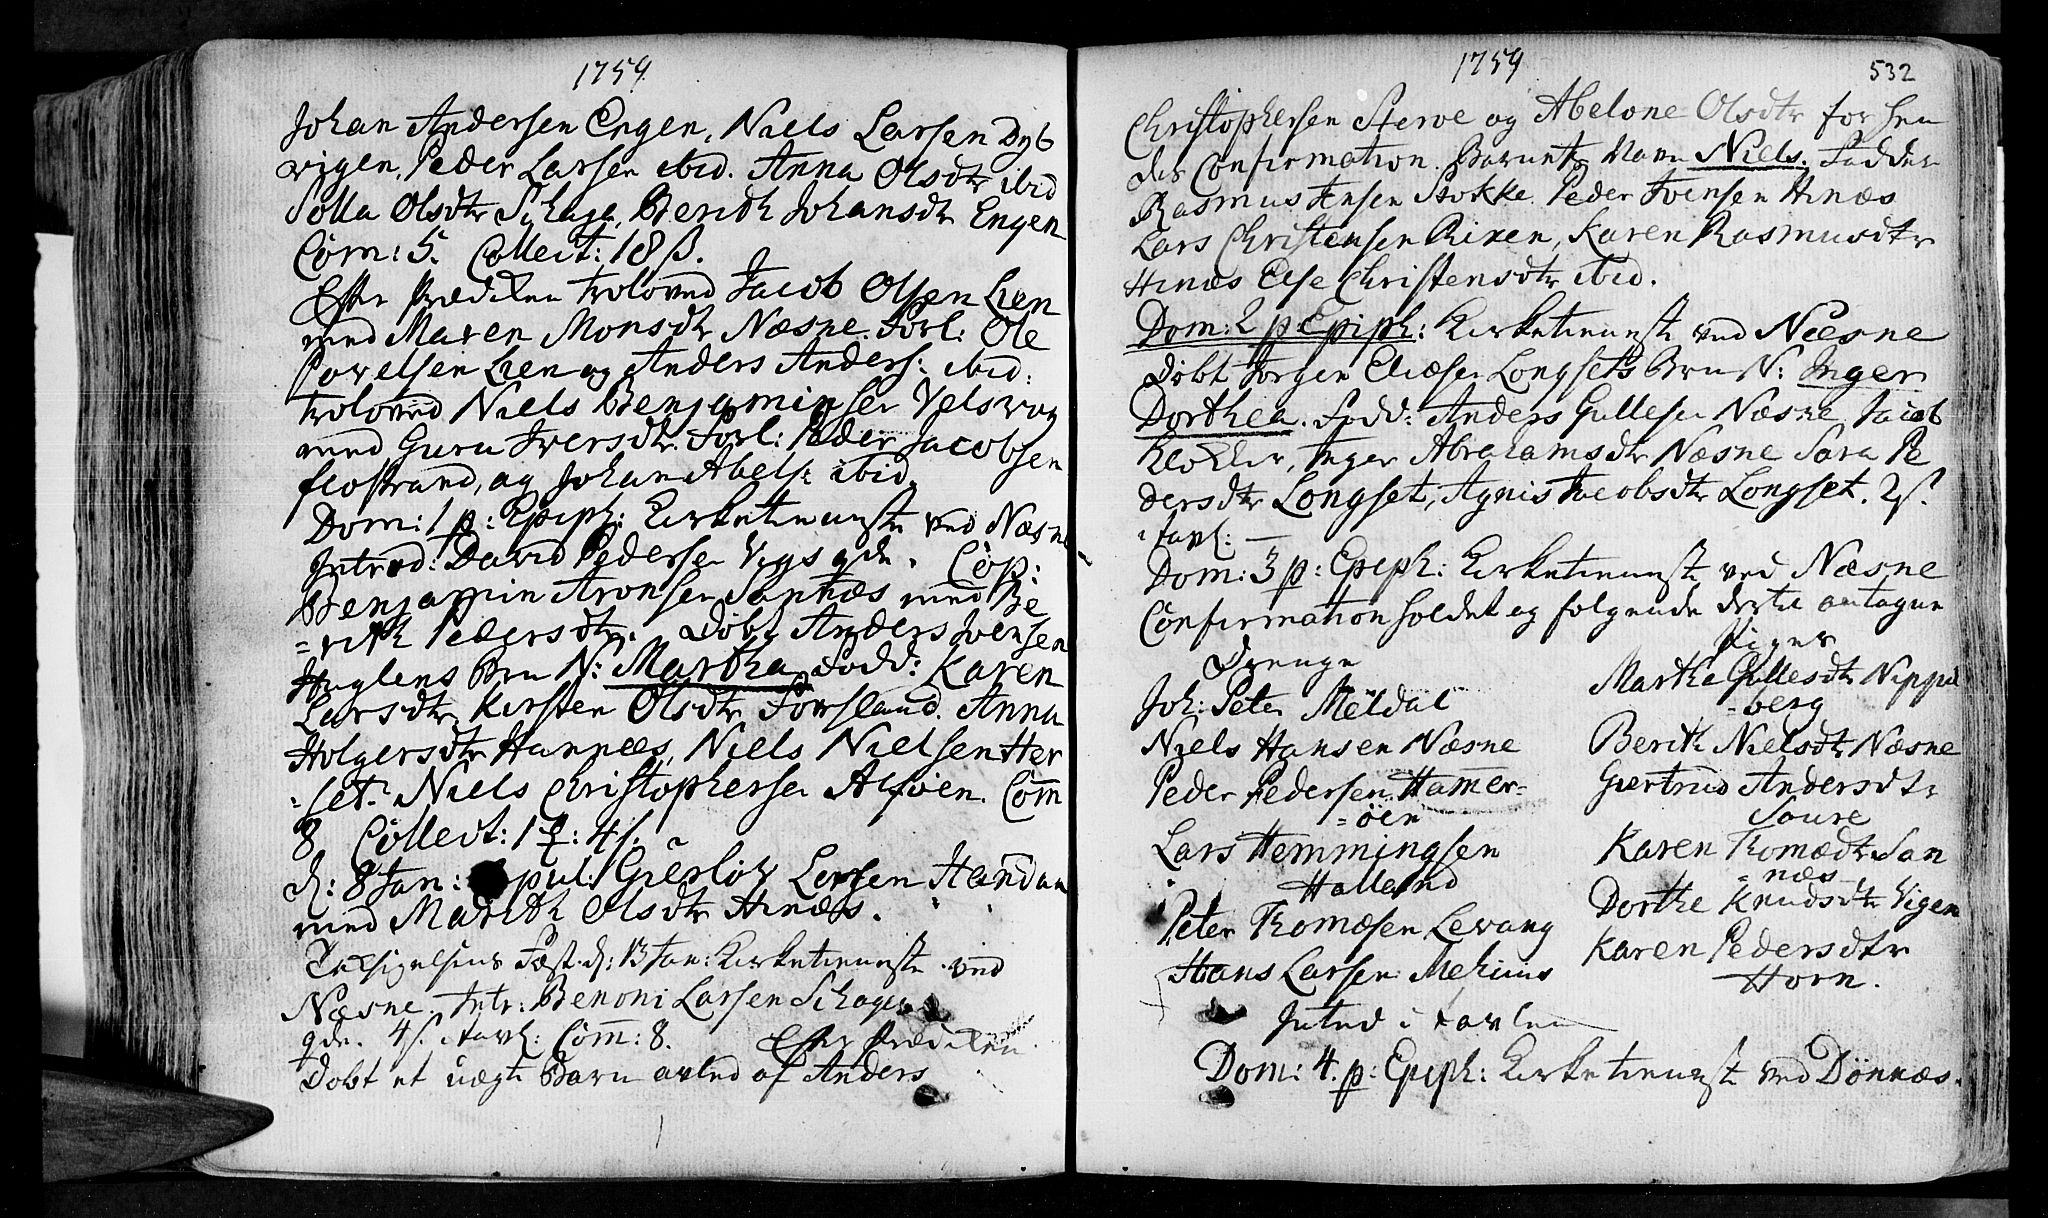 1759
Johan Andersen Engen, Niels Larsen Dyb
vigen, Peder Larsen ibid. Anna Olsdtr ibid
Solla Olsdtr Schage, Berith Johansdtr Engen
Com̄: 5. Collect: 18 ß.
Efter Prædiken troloved Jacob Olsen Lien
med Maren Monsdtr Næsne. Forl: Ole
Povelsen Lien og Anders Anders: ibid:
troloved Niels Benjaminsen Velsvog
med Guru Iversdtr. Forl: Peder Jacobsen
flostrand, og Johan Abels: ibid.
Dom: 1 p: Epiph: Kirketieneste ved Næsne
Introd: David Pedersen Vogs qde. Cop:
Benjamin Aronsen Sannæs med Be
=rith Pedersdtr. Døbt Anders Ivensen
Huglens Brn N: Martha, Fadd: Karen
Larsdtr, Kirsten Olsdtr Forsland. Anna
Holgersdtr Hannees, Niels Nielsen Her
=set. Niels Christophersen Alsøen. Com̄
8 Collect: 1 4 s.
d: 8 Jan: Copul: Gierløv Larsen Handan
med Marith Olsdtr Hinæs.
Tacksigelsens Fæst. d: 13 Jan: Kirketieneste ved
Næsne. Intr: Benoni Larsen Schages
qde. 4 s. i tavl: Com̄: 8. Efter Prædiken
Døbt et uægte Barn avled af Anders
1759
532
Christophersen Sterve og Abelone Olsdtr for hen
des Confirmation. Barnets Navn Niels. Faddere
Rasmus Jensen Stokke Peder Ivensen Hinæs
Lars Christensen Rixen, Karen Rasmusdtr
Hinæs Else Christensdtr ibid.
Dom: 2 p: Epiph: Kirketieneste ved Næsne
Døbt Jørgen Eliæsen Longsets Brn N: Inger
Dorthea. Fadd: Anders Gullesen Næsne, Jacob
Klokker, Inger Abrahamsdtr Næsne Sara Pe
dersdtr Longset, Agnis Jacobsdtr Longset. 2 s.
i tavl: —
Dom: 3 p: Epiph: Kirketieneste ved Næsne
Confirmation holdet og følgende dertil antagne
Drenge
Joh: Peter Meldal
Niels Hansen Næsne
Peder Pedersen Ham̄er=
=øen
Lars Hemmingsen
Halland
Peter Thomæsen Levang
Hans Larsen
Piger
Martha Gullesdtr Nippel
=berg
Berith Nielsdtr Næsne
Giertrud Andersdtr
Soure
Karen Thomædtr San
=næs
Dorthe Knudsdtr Vigen
Karen Pedersdtr
Horn.
Intet i tavlen
Dom: 4. p: Epiph: Kirketieneste ved Dönnæs.